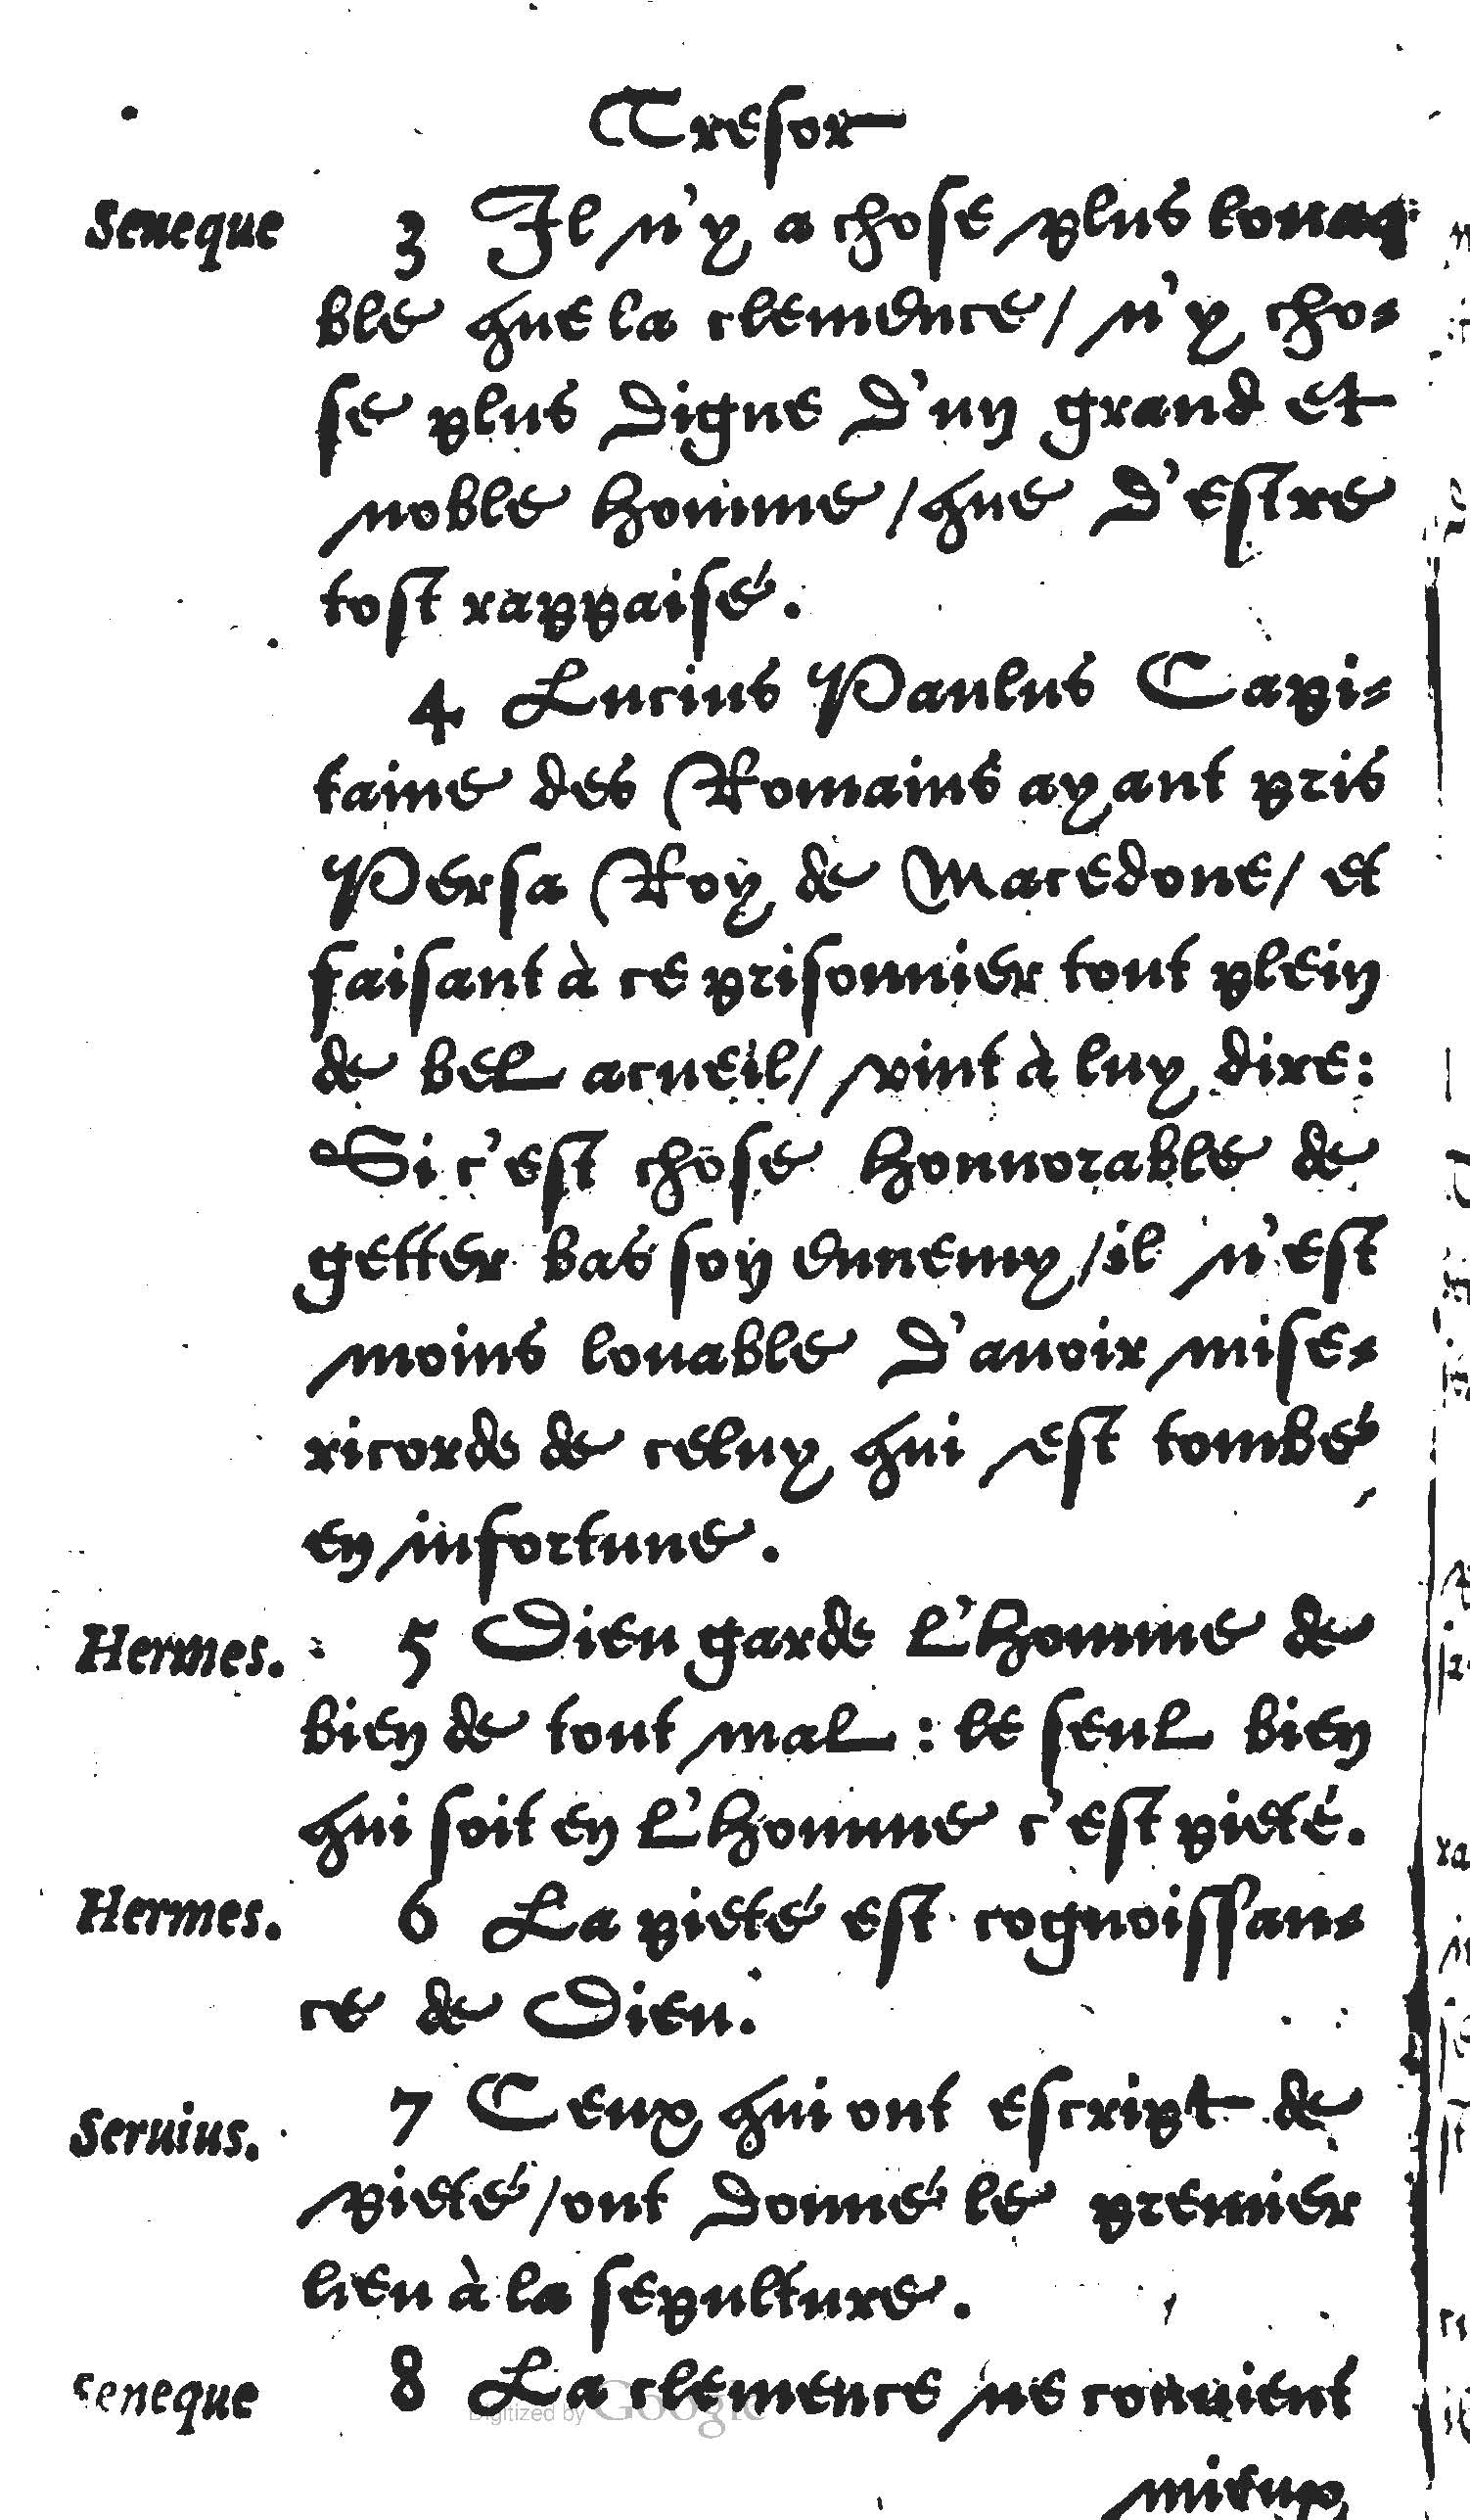 Tresor
Seneque 3 Il n'y a chose plus louaa
ble que la clemence/ n'y cho-
se plus digne d'un grand et
noble homme/ que d'estre
tost rappaisé.
4 Lucius Paulus Capi-
taine des Romains ayant pris
Persa Roy de Macedone/ et
faisant à ce prisonnier tout plein
de bel acueil/ vint à luy dire:
Si c'est chose honnorable de
getter bas son ennemy/ il n'est
moins louable d'auoir mise-
ricorde de celuy qui est tombé
en infortune.
Hermes. 5 Dieu garde l'homme de
bien de tout mal: le seul bien
qui soit en l'homme c'est pieté.
Hermes. 6 La pieté est cognoissan-
ce de Dieu.
Seruius. 7 Ceux qui ont escript de
pieté/ ont donné le premier
lieu à la sepulture.
Seneque 8 La clemence ne conuient
Digitized by Google
mieux